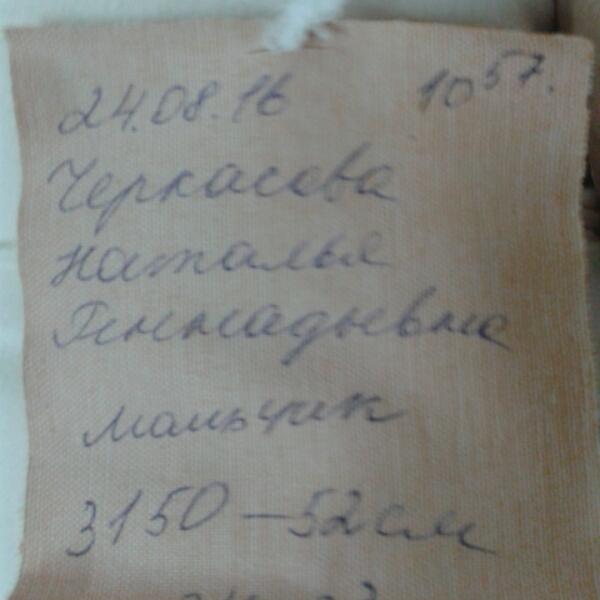 24.08.16 10 57.
Черкасова
Наталья
Геннадьевна
мальчик
3150 – 52 см